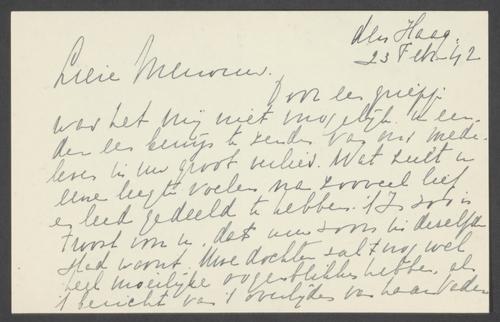 den Haag.
23 Febr. 42
Lieve Mevrouw.
Door een griepje
was het mij niet mogelijk u eer
der een bewijs te zenden van ons mede
leven in uw groot verlies. Wat zult u
eene leegte voelen na zooveel lief
en leed gedeeld te hebben. 't Is zoo'n
troost voor u, dat uw zoon in dezelfde
stad woont. Uwe dochter zal 't nog wel
heel moeilijke oogenblikken hebben, als
't bericht van 't overlijden van haar Vader